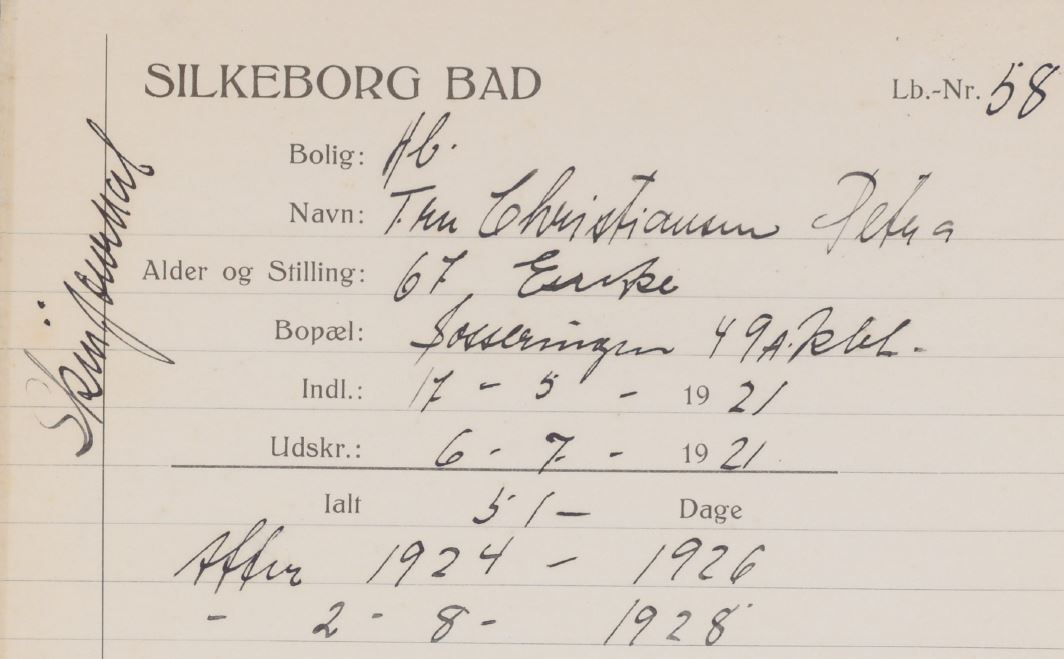 SILKEBORG BAD
Lb.-Nr. 58
Bolig: Hb.
Navn: Fru Christiansen Petra
Alder og Stilling: 67 Enke
Bopæl: Sosseringen 49A. Kbh.
Indl.: 17 - 5 - 1921
Udskr.: 6 - 7 - 1921
Ialt 51 - Dage
Atter 1924 - 1926
- 2 - 8 - 1928